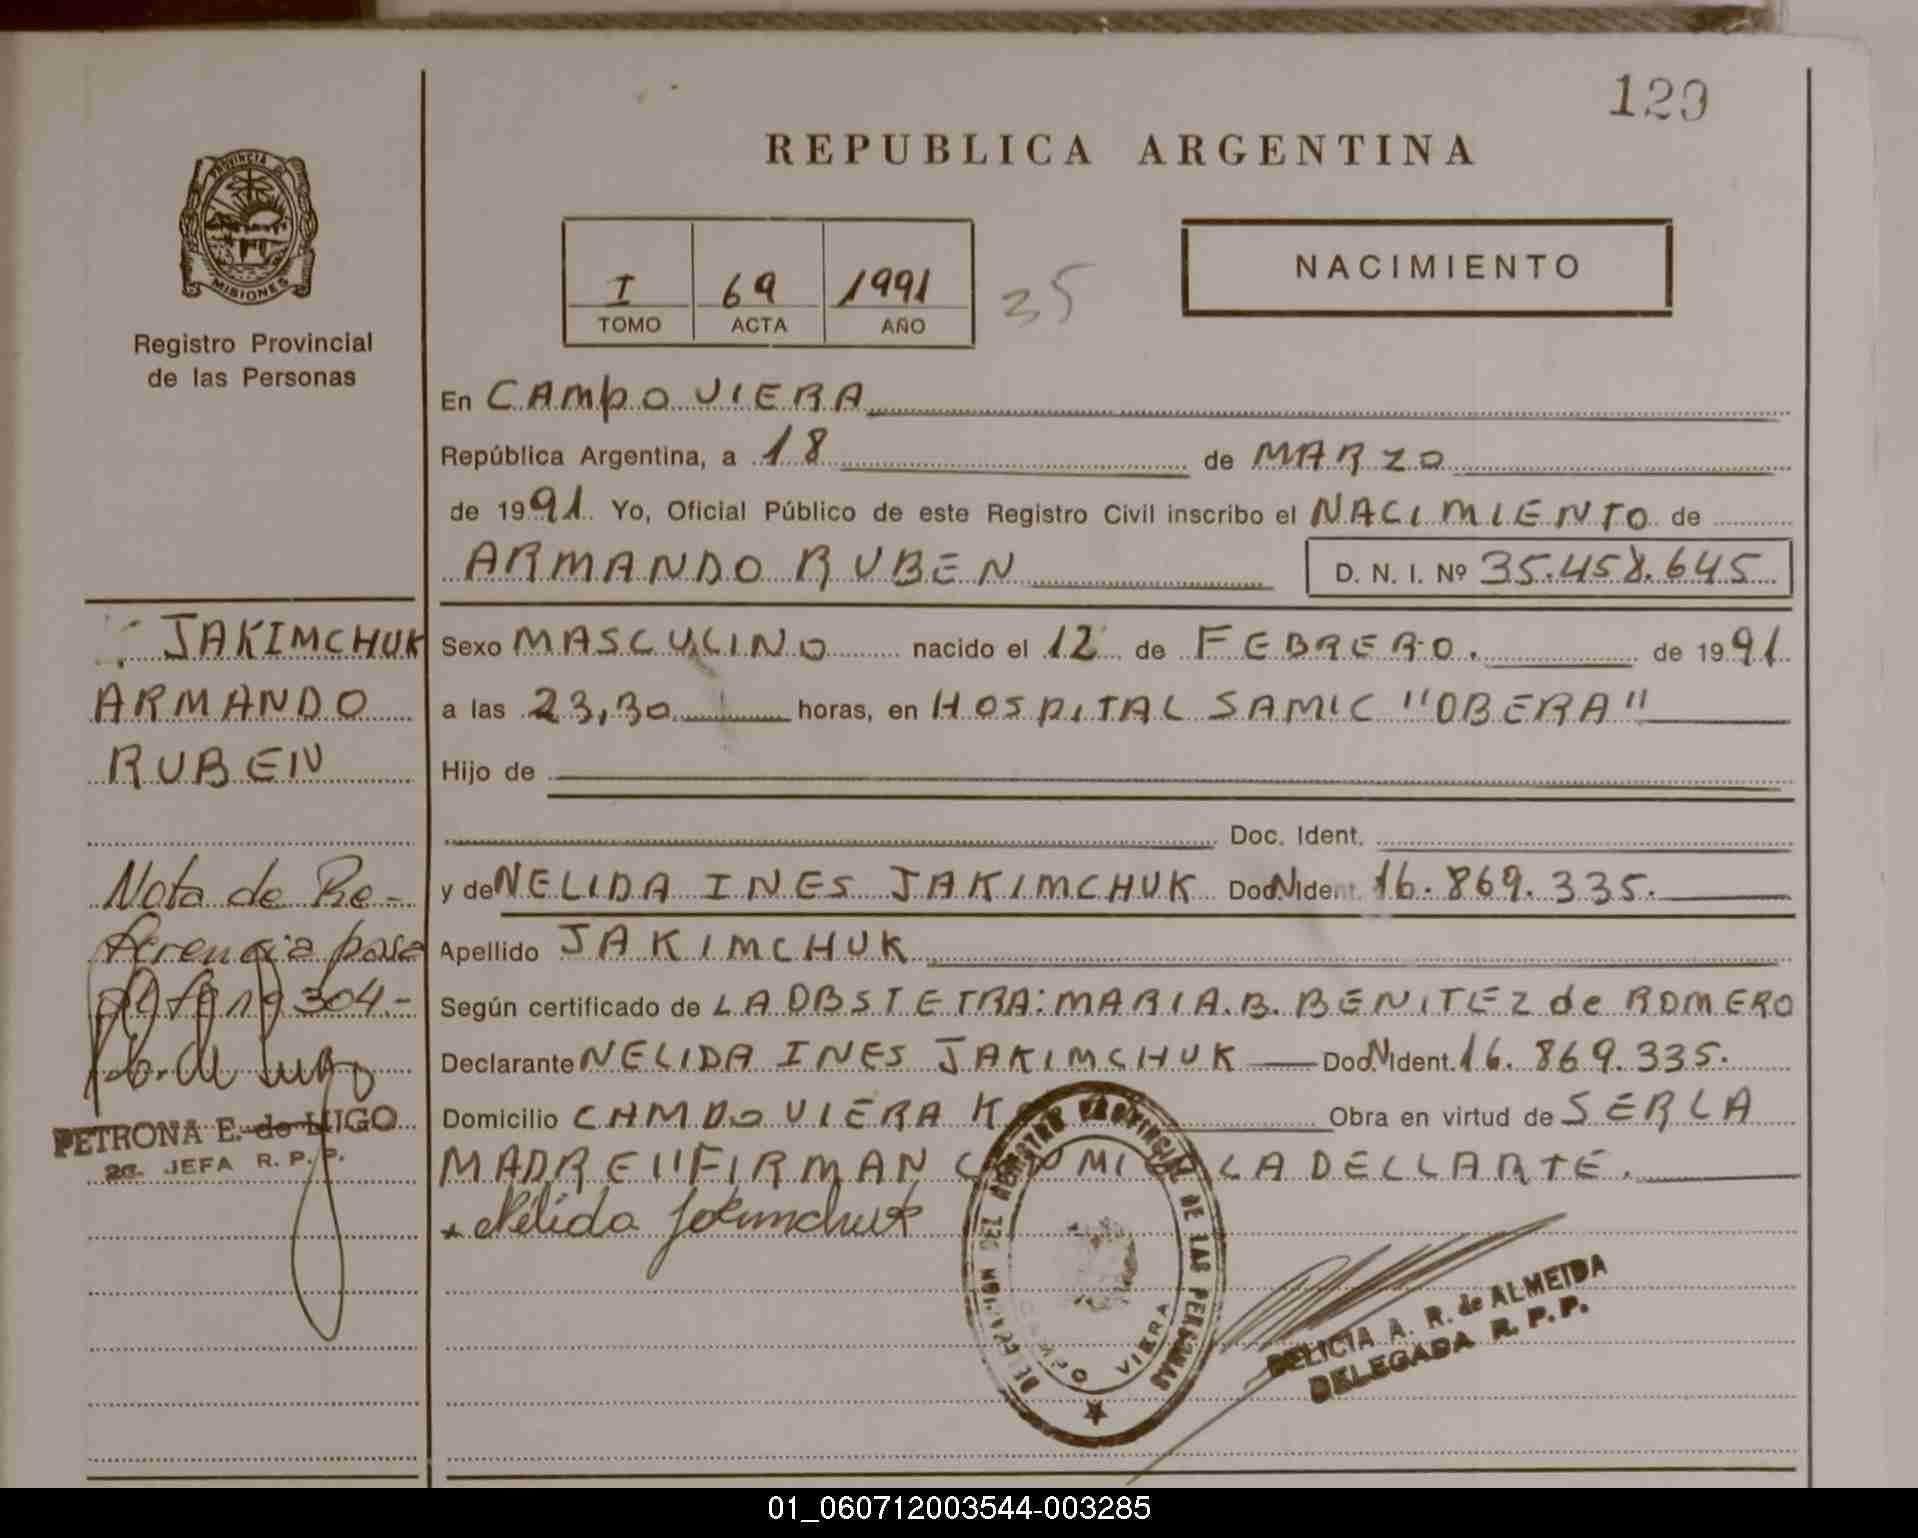 120
REPUBLICA ARGENTINA
PROVINCIA DE
MISIONES
Registro Provincial
de las Personas
I 69 1991
TOMO ACTA AÑO
35
NACIMIENTO
En CAMPO VIERA
República Argentina, a 18 de MARZO
de 1991 Yo, Oficial Público de este Registro Civil inscribo el NACIMIENTO de
ARMANDO RUBEN D. N. I. Nº 35.458.645
JAKIMCHUK
ARMANDO
RUBEN
Sexo MASCULINO nacido el 12 de FEBRERO. de 1991
a las 23,30 horas, en HOSPITAL SAMIC "OBERA"
Hijo de
Doc. Ident.
y de NELIDA INES JAKIMCHUK Doc.N Ident. 16.869.335.
Apellido JAKIMCHUK
Según certificado de LA OBSTETRA: MARIA.B. BENITEZ de ROMERO
Declarante NELIDA INES JAKIMCHUK — Doc.N Ident. 16.869.335.
Domicilio CAMPO VIERA Obra en virtud de SER LA
MADRE "FIRMAN LA DECLARTE.
Nélida Jakimchuk
Nota de Re-
ferencia pasa
304.-
PETRONA E. de LUGO
2a. JEFA R. P. P.
REGISTRO PROVINCIAL DE LAS PERSONAS
CAMPO VIERA
DELICIA A. R. de ALMEIDA
DELEGADA R. P. P.
01_060712003544-003285